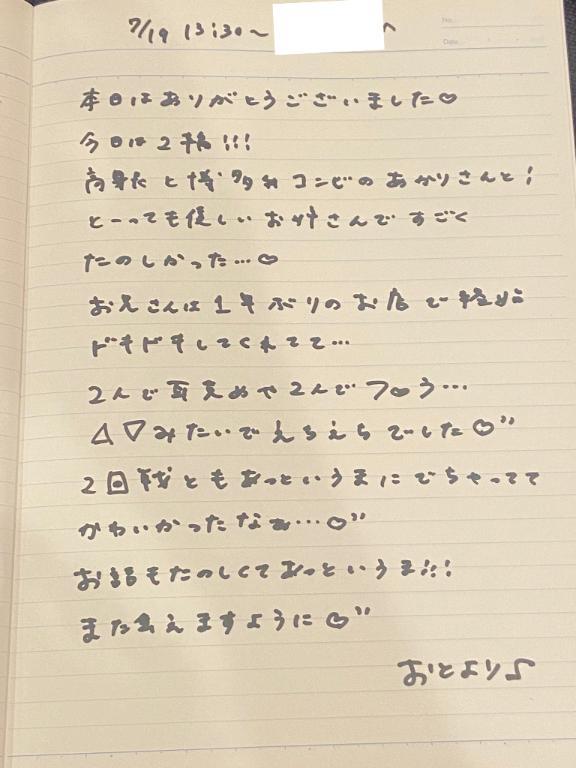 7/19 13:30〜 へ
No.
Date
本日はありがとうございました♡
今日は2輪!!!
高身長と博多のコンビのあかりさんと!
とーっても優しいお姉さんですごく
たのしかった…♡
お兄さんは1年ぶりのお店で
ドキドキしてくれてて…
2人で耳元めや2人でフ○う…
△▽みたいでえちえちでした♡”
2回戦ともあっというまにでちゃってて
かわいかったなぁ…♡”
お話もたのしくてあっというま!!!
また会えますように♡”
おとより♪